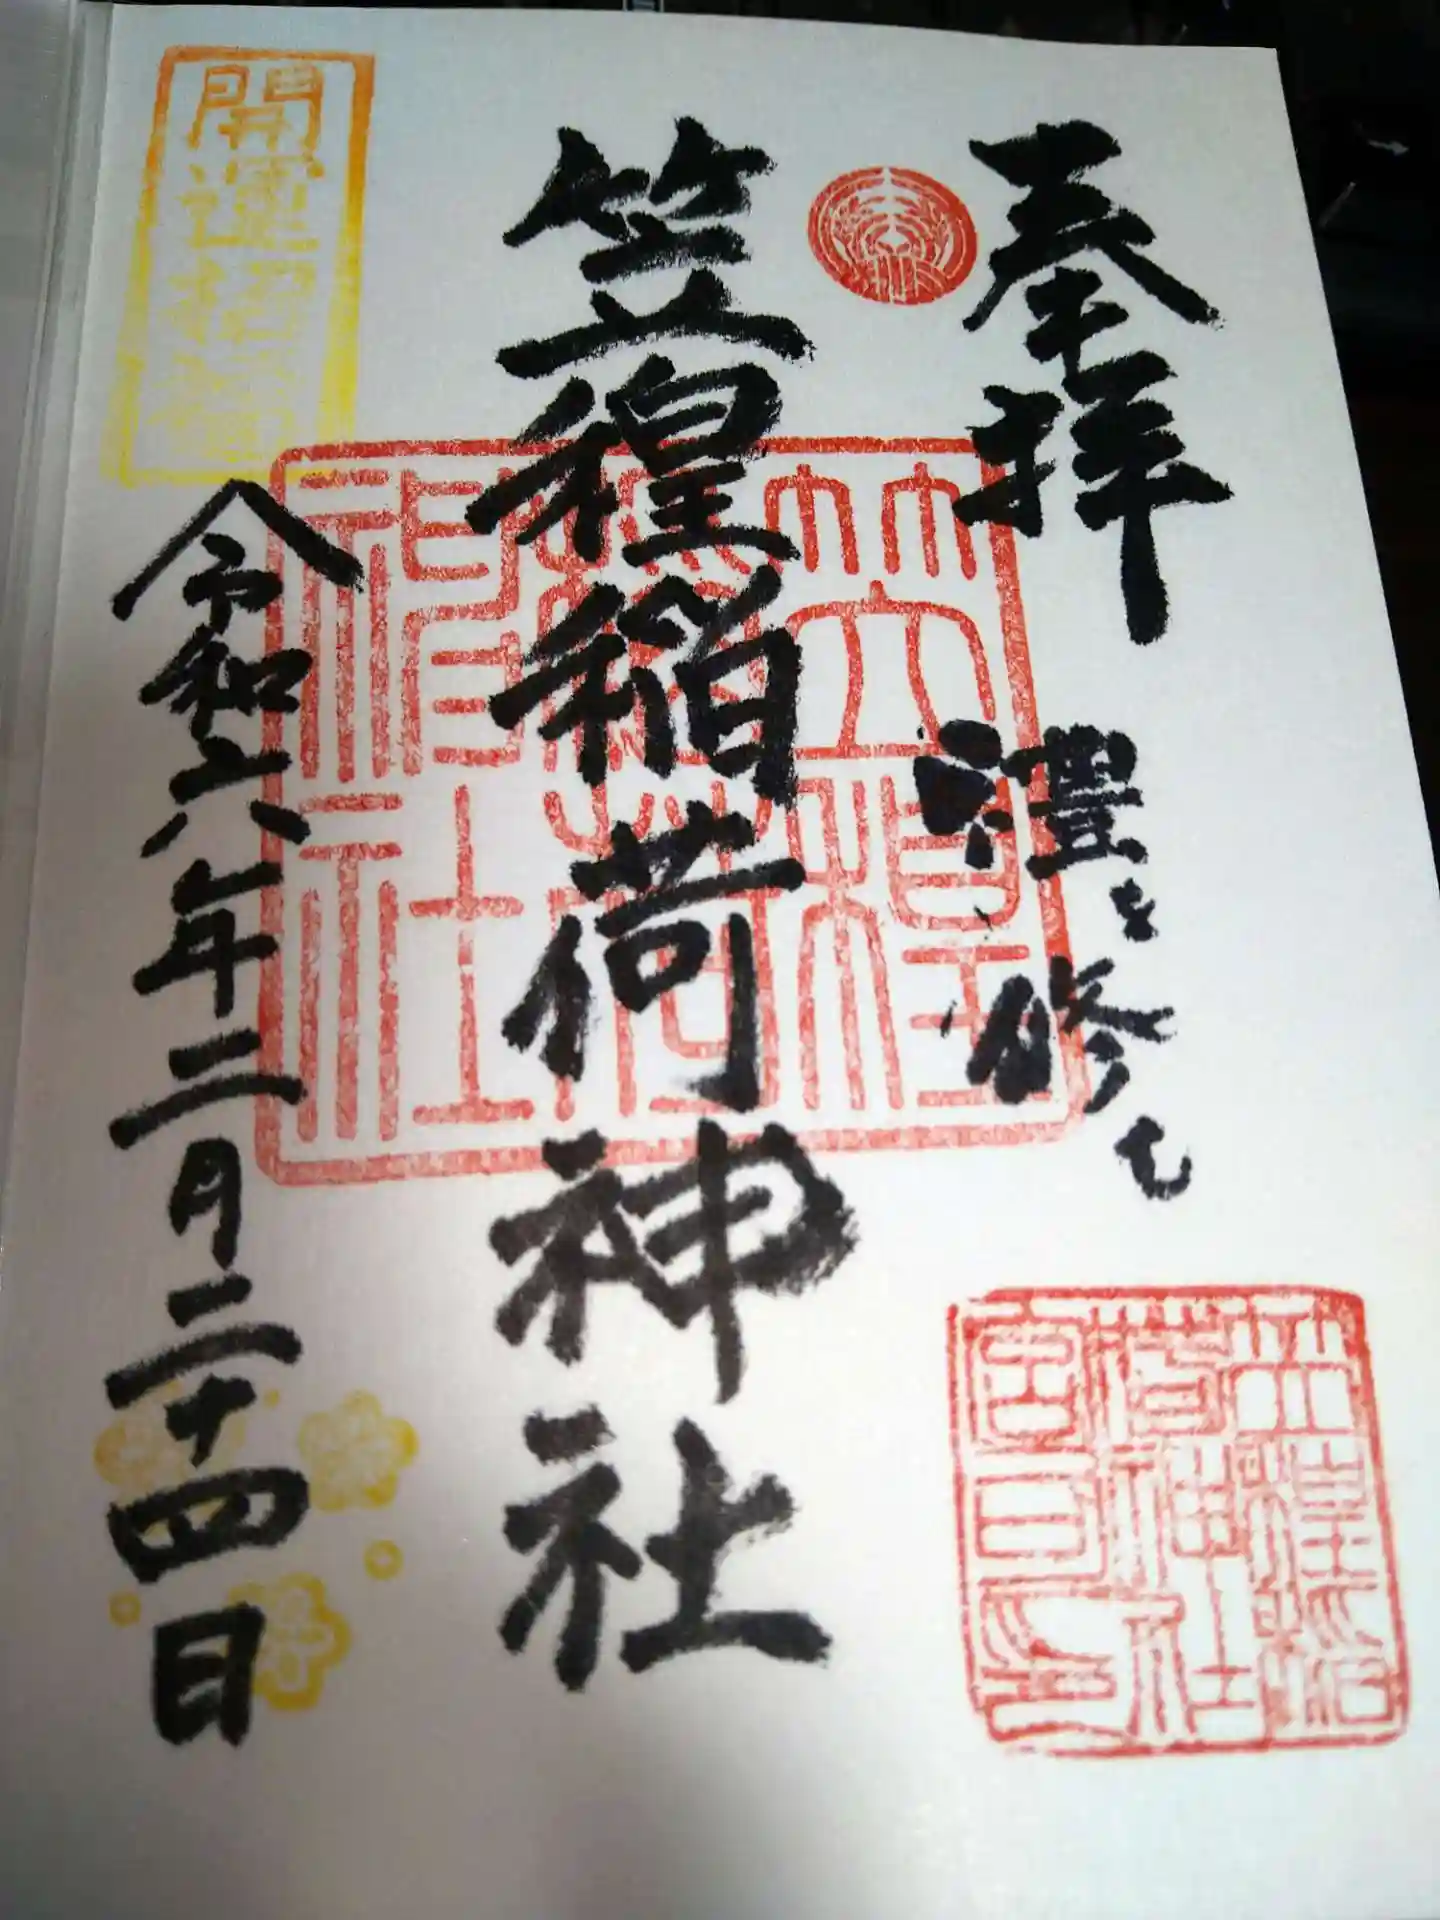 奉拝
禮を修む
笠䅣稲荷神社
令和六年二月二十四日
開運招福
笠䅣
稲荷
神社
笠䅣稲
荷神社
宮司印